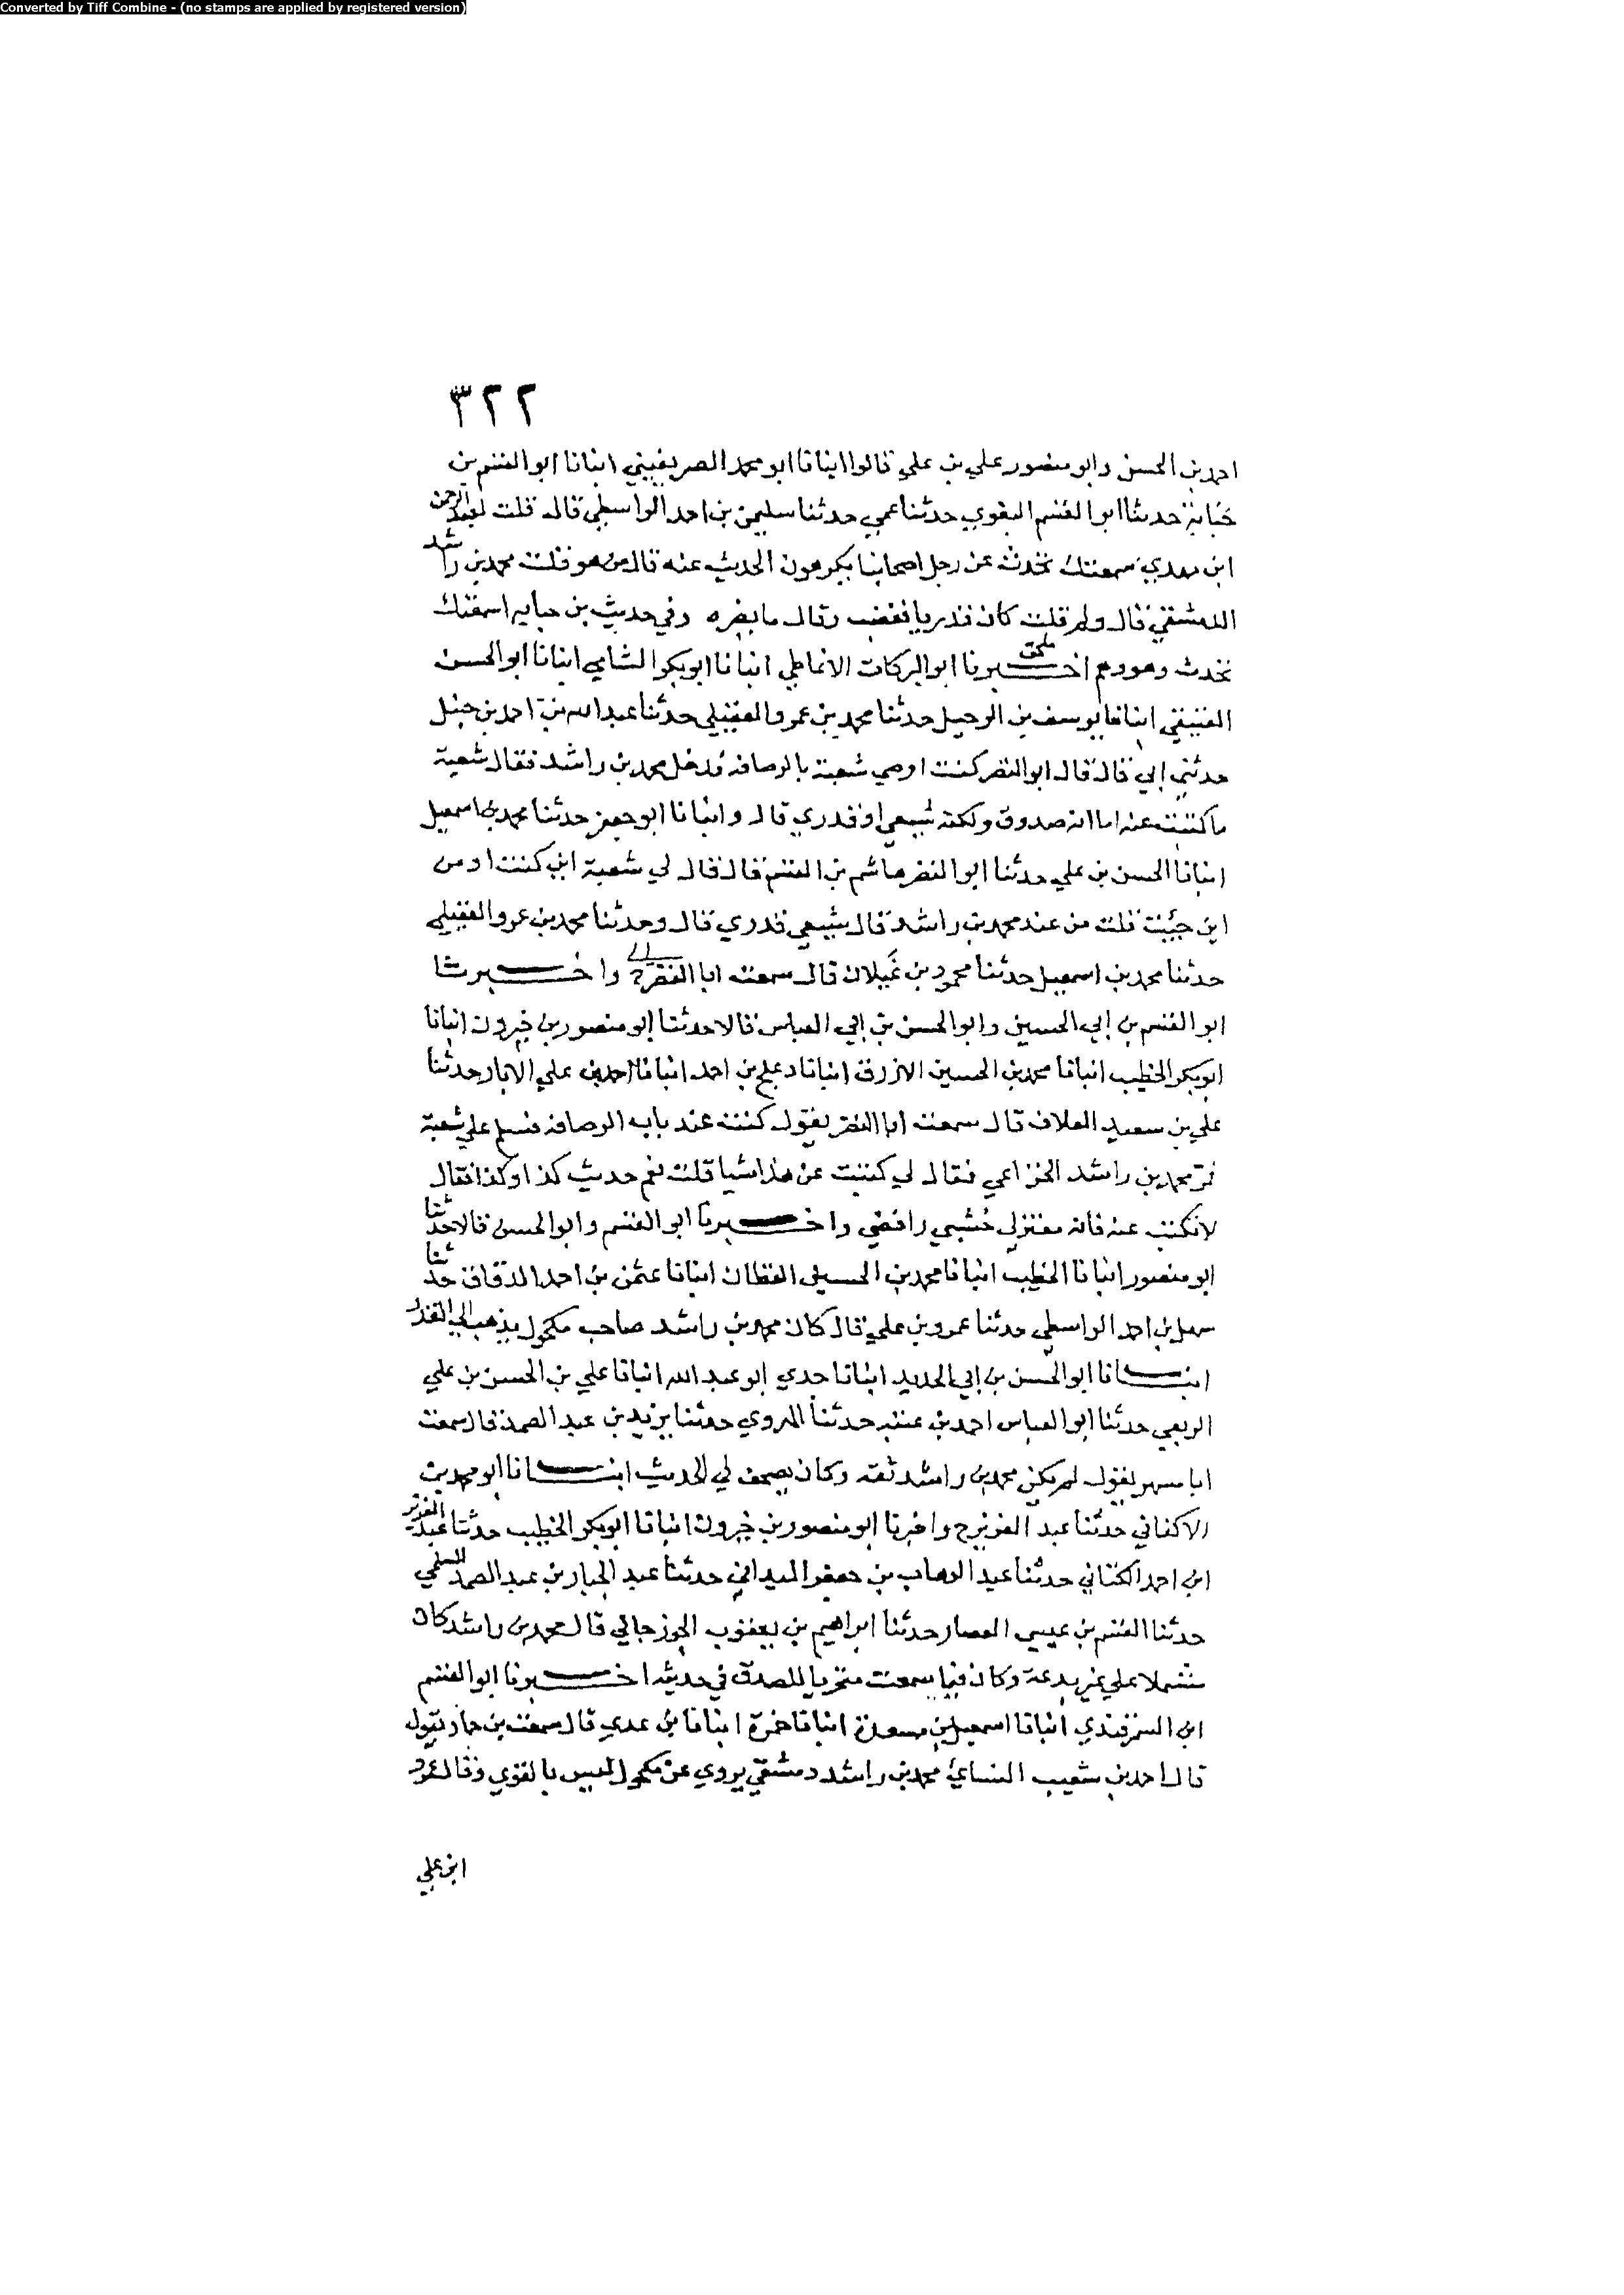 Converted by Tiff Combine - (no stamps are applied by registered version)
٣٢٢
احمد بن الحسن وابو منصور علي بن علي قالوا انبانا ابو محمد الصريفيني انبانا ابو القسم بن
حبابة حدثنا ابو القسم البغوي حدثنا عمي حدثنا سليمن بن احمد الواسطي قال قلت لعبد الرحمن
ابن مهدي سمعتك تحدث عن رجل اصحابنا يكرهون الحديث عنه قال من هو قلت محمد بن راشد
الدمشقي قال ولم قلت كان قدريا فغضب وقال ما يضره وفي حديث بن حبابه اسمعتك
تحدث وهو وهم اخبرنا ابو البركات الانماطي انبانا ابو بكر الشامي انبانا ابو الحسن
العتيقي انبانا يوسف بن الرحيل حدثنا محمد بن عمرو العقيلي حدثنا عبد الله بن احمد بن حنبل
حدثني ابي قال قال ابو النضر كنت اوصي شعبة بالرصافة فدخل محمد بن راشد فقال شعبة
ما كتبت عنه اما انه صدوق ولكنه شيعي او قدري قال وانبانا ابو جعفر حدثنا محمد بن اسمعيل
انبانا الحسن بن علي حدثنا ابو النضر هاشم بن القسم قال قال لي شعبة اين كنت او من
اين جئت قلت من عند محمد بن راشد قال شيعي قدري قال وحدثنا محمد بن عمرو العقيلي
حدثنا محمد بن اسمعيل حدثنا محمود بن غيلان قال سمعت ابا النضر ح واخبرنا
ابو القسم بن ابي الحسين وابو الحسن بن ابي العباس قالا حدثنا ابو منصور بن خيرون انبانا
ابو بكر الخطيب انبانا محمد بن الحسين الازرق انبانا دعلج بن احمد انبانا احمد بن علي الابار حدثنا
علي بن سعيد العلاف قال سمعت ابا النضر يقول كنت عند باب الرصافة فسلم علي شعبة
فمر محمد بن راشد الخزاعي فقال لي كتبت عن هذا شيا قلت نعم حديث كذا وكذا فقال
لا تكتب عنه فانه معتزلي خشبي رافضي واخبرنا ابو القسم وابو الحسن قالا حدثنا
ابو منصور انبانا الخطيب انبانا محمد بن الحسين القطان انبانا عثمن بن احمد الدقاق حدثنا
سهل بن احمد الواسطي حدثنا عمرو بن علي قال كان محمد بن راشد صاحب مكحول يذهب الي القدر
انبانا ابو الحسن بن ابي الحديد انبانا جدي ابو عبد الله انبانا علي بن الحسن بن علي
الربعي حدثنا ابو العباس احمد بن عتبه حدثنا الهروي حدثنا يزيد بن عبد الصمد قال سمعت
ابا مسهر يقول لم يكن محمد بن راشد ثقه وكان يصحف لي الحديث انبانا ابو محمد بن
الاكفاني حدثنا عبد العزيز ح واخبرنا ابو منصور بن خيرون انبانا ابو بكر الخطيب حدثنا عبد العزيز
ابن احمد الكتاني حدثنا عبد الوهاب بن جعفر الميداني حدثنا عبد الجبار بن عبد الصمد السلمي
حدثنا القسم بن عيسي العصار حدثنا ابراهيم بن يعقوب الجوزجاني قال محمد بن راشد كان
مشتملا علي غير بدعة وكان فيما سمعت متحريا للصدق في حديثه اخبرنا ابو القسم
ابن السمرقندي انبانا اسمعيل بن مسعدة انبانا حمزة انبانا بن عدي قال سمعت بن حماد يقول
قال احمد بن شعيب النسائي محمد بن راشد دمشقي يروي عن مكحول ليس بالقوي وقال عمرو
ابن علي